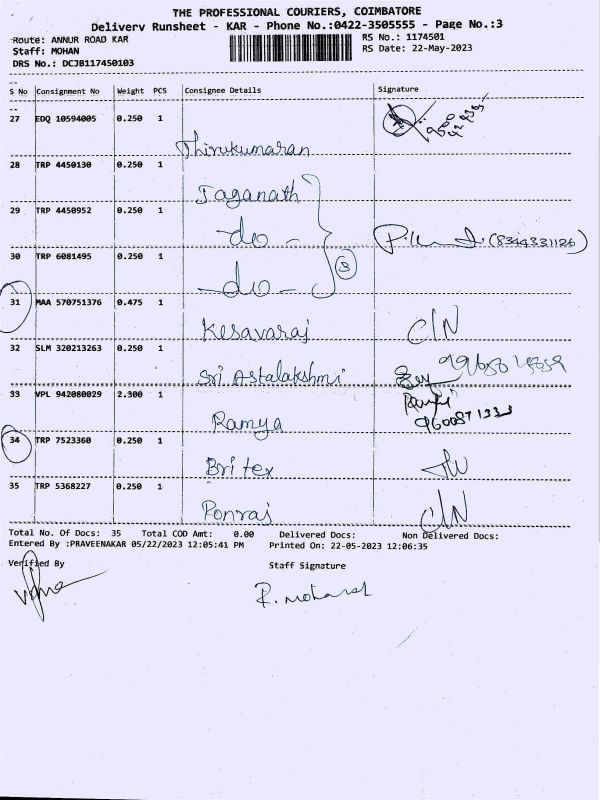 THE PROFESSIONAL COURIERS, COIMBATORE
Delivery Runsheet - KAR - Phone No.:0422-3505555 - Page No.:3
Route: ANNUR ROAD KAR RS No.: 1174501
Staff: MOHAN RS Date: 22-May-2023
DRS No.: DCJB117450103
S No Consignment No Weight PCS Consignee Details Signature
27 EDQ 10594005 0.250 1
Thirukumaran
28 TRP 4450130 0.250 1
Jaganath
29 TRP 4450952 0.250 1
-do- (8344331126)
30 TRP 6081495 0.250 1 3
-do-
31 MAA 570751376 0.475 1
Kesavaraj C/N
32 SLM 320213263 0.250 1
Sri Astalakshmi
33 VPL 942080029 2.300 1
Ramya
34 TRP 7523360 0.250 1
Britex
35 TRP 5368227 0.250 1
Ponraj C/N
Total No. Of Docs: 35 Total COD Amt: 0.00 Delivered Docs: Non Delivered Docs:
Entered By :PRAVEENAKAR 05/22/2023 12:05:41 PM Printed On: 22-05-2023 12:06:35
Verified By Staff Signature